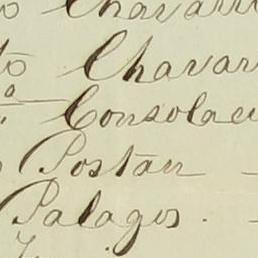 to Chavarr
to Chavar
a Consolaci
Postan
Palagos.